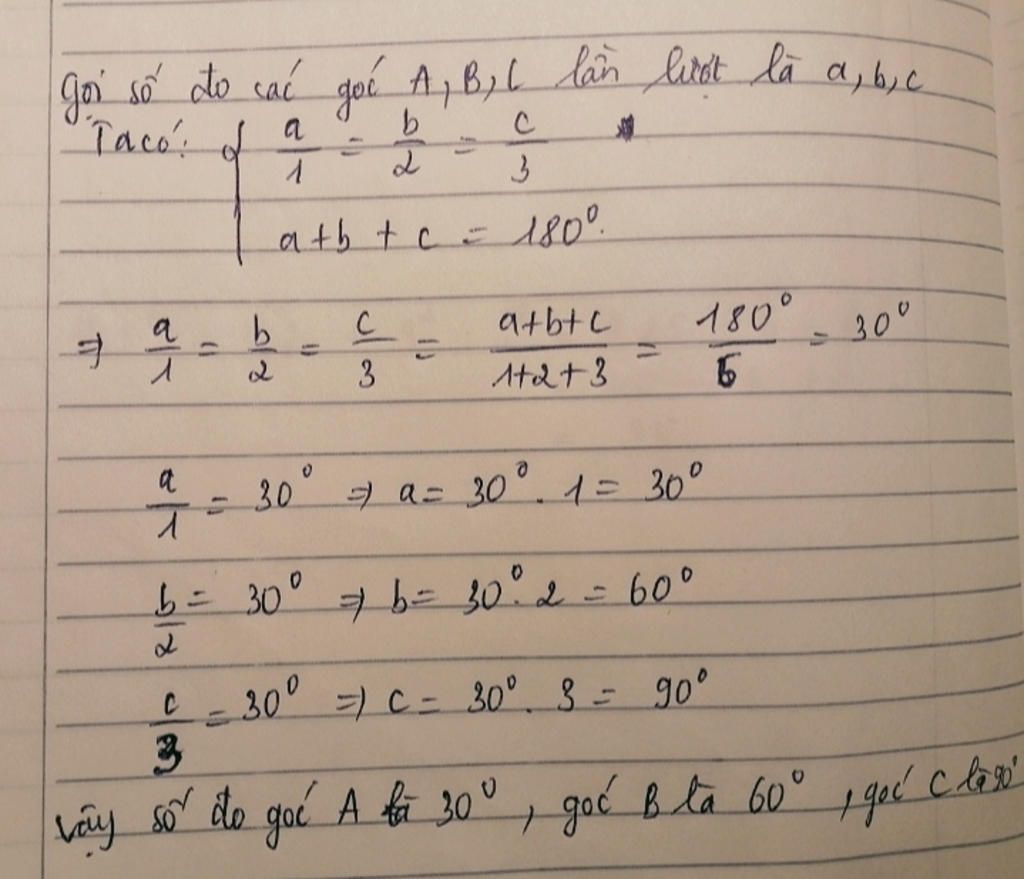 Gọi số đo các góc A, B, C lần lượt là a, b, c
Ta có: { a/1 = b/2 = c/3
a + b + c = 180°.
⇒ a/1 = b/2 = c/3 = (a+b+c)/(1+2+3) = 180°/6 = 30°
a/1 = 30° ⇒ a = 30° . 1 = 30°
b/2 = 30° ⇒ b = 30° . 2 = 60°
c/3 = 30° ⇒ c = 30° . 3 = 90°
Vậy số đo góc A là 30°, góc B là 60°, góc C là 90°